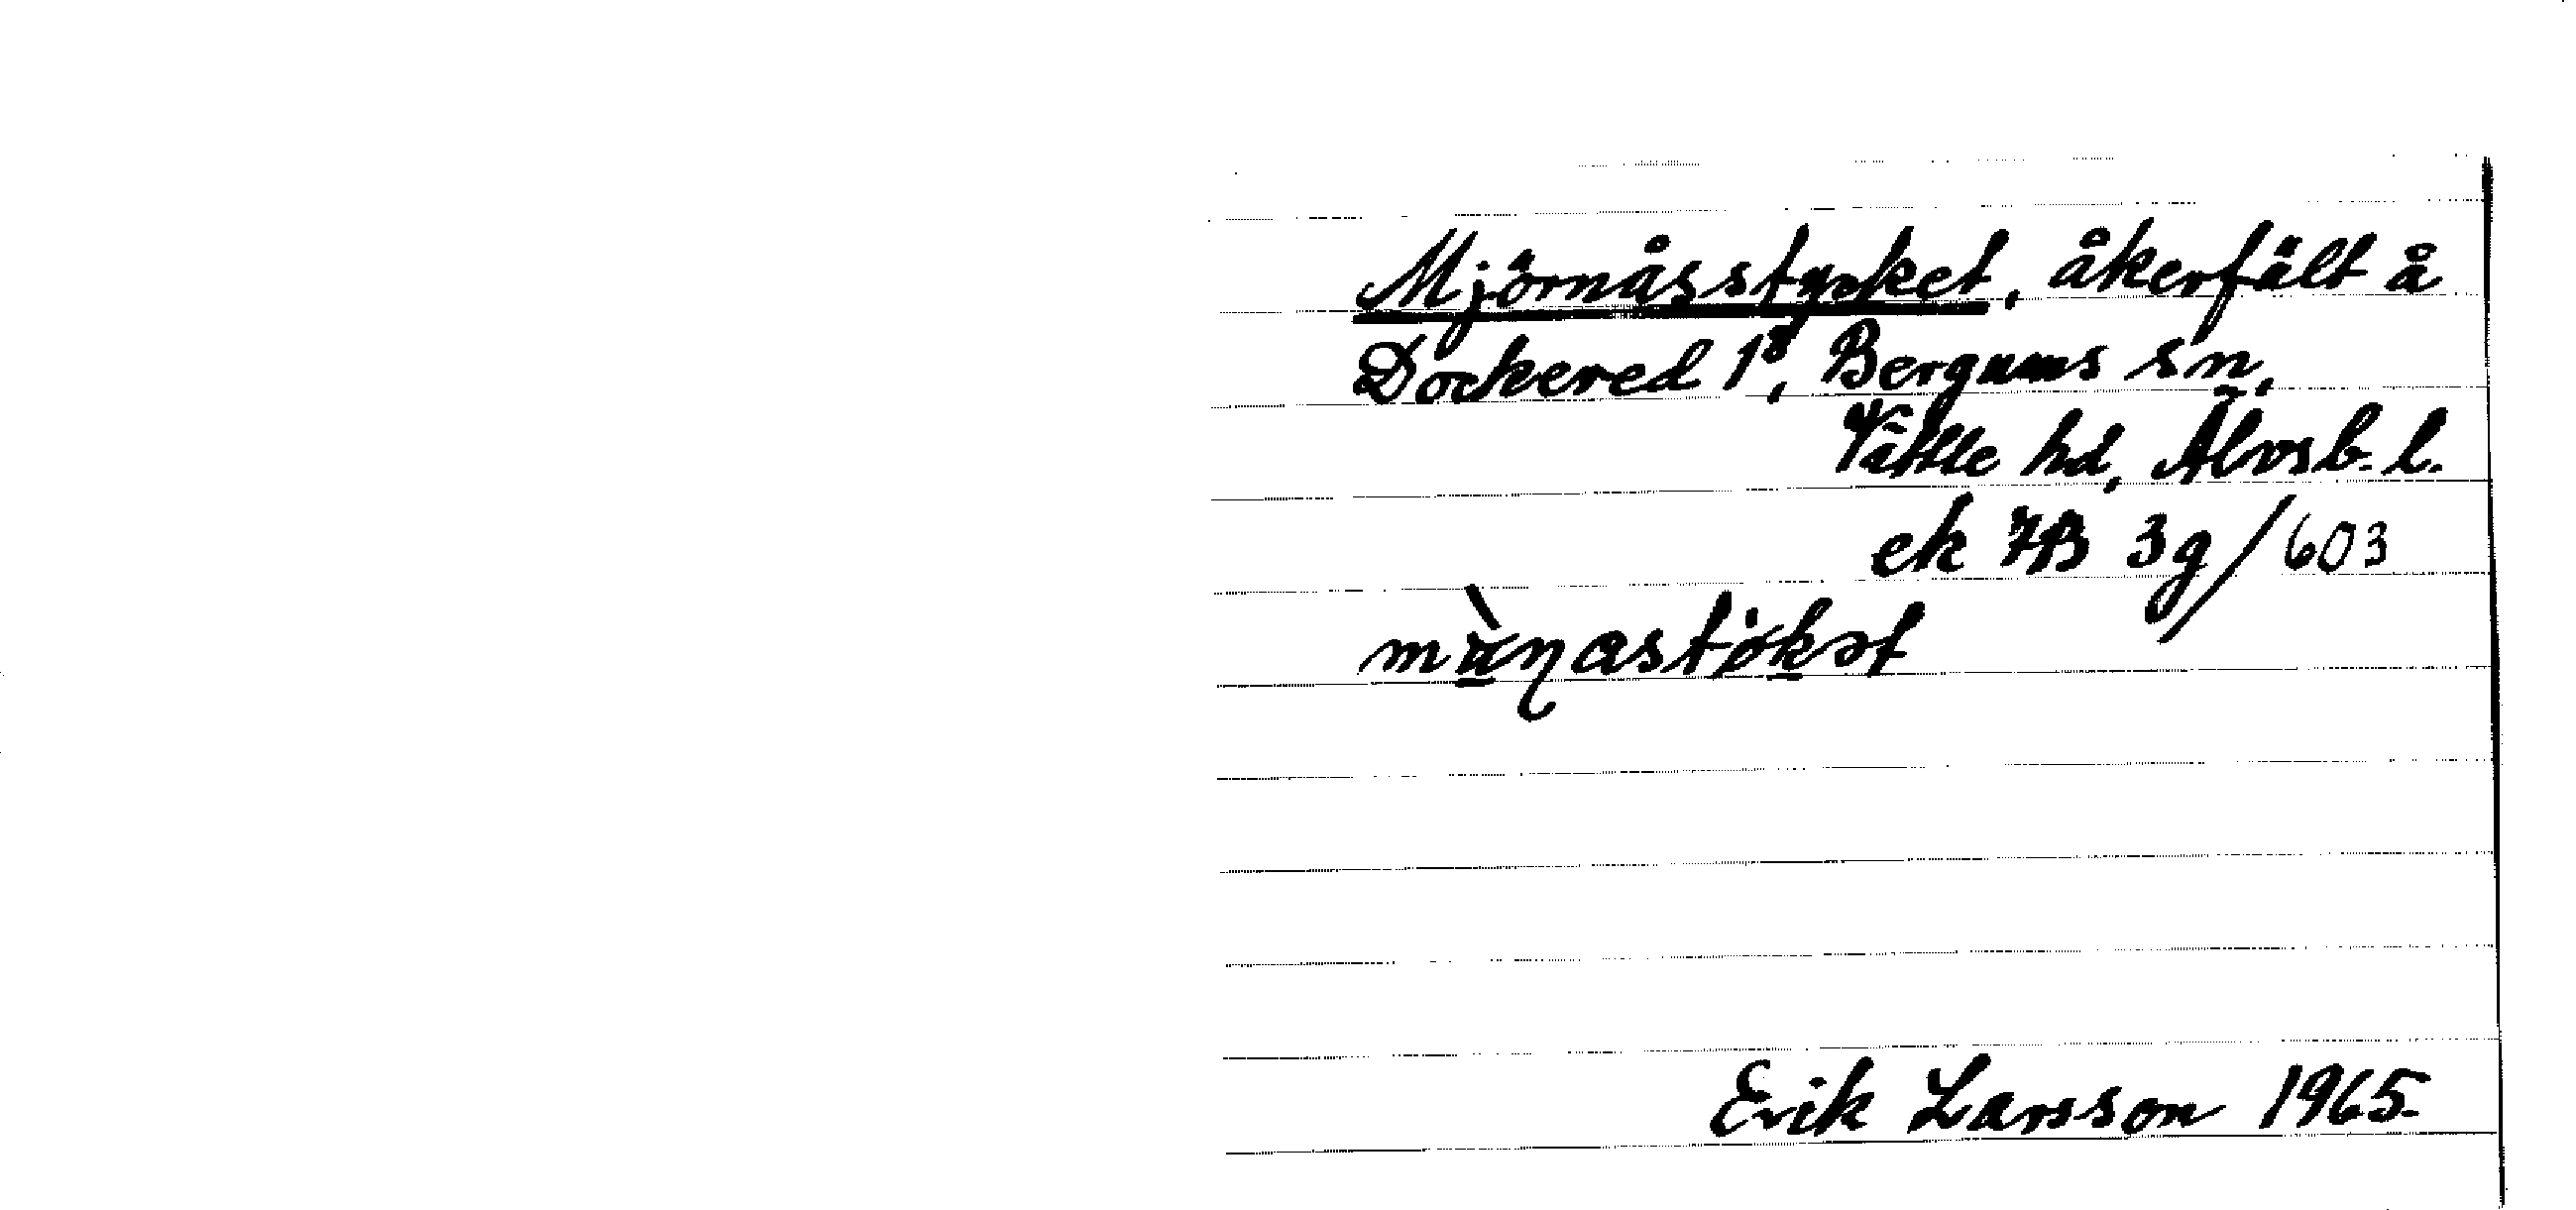 Mjörnåsstycket, åkerfält å
Dockered 1⁸, Bergums sn,
Vättle hd, Älvsb. l.
ek 7B 3g/603
Erik Larsson 1965.